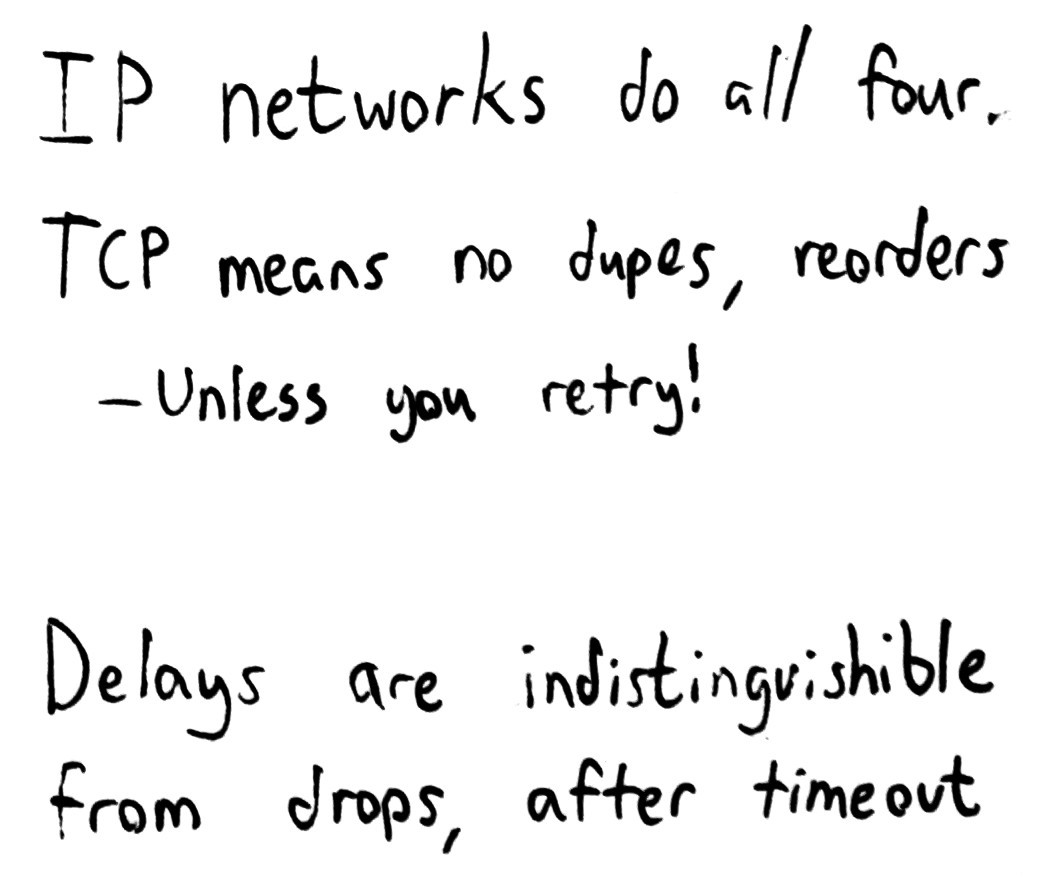 IP networks do all four.
TCP means no dupes, reorders
- Unless you retry!
Delays are indistinguishible
from drops, after timeout